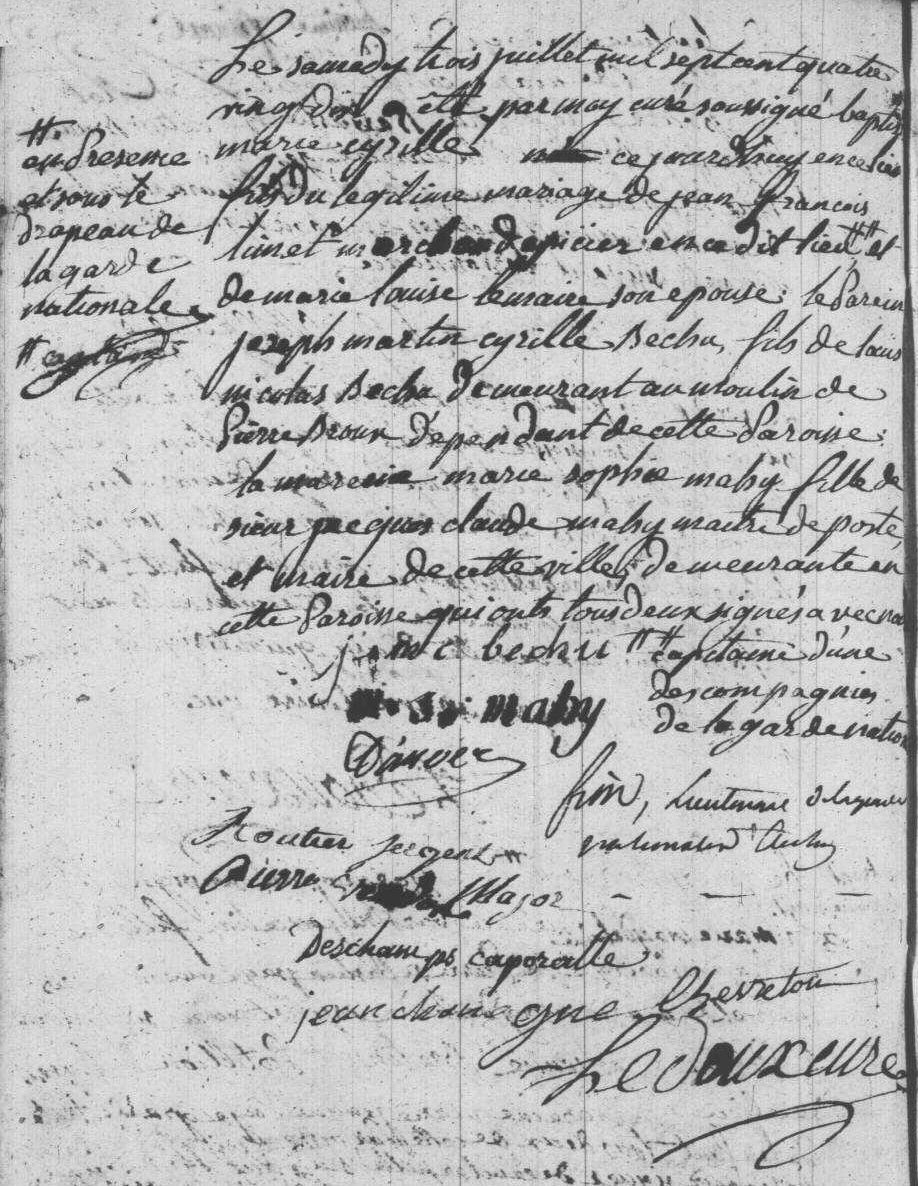 Le samedy trois juillet mil sept cent quatre
vingt dix a été par moy curé soussigné baptisé
marie cyrille né ce jourdhuy en ce lieu
fils du legitime mariage de jean françois
limet marchand epicier en ce dit lieu # et
de marie louise lemaire son epouse: le parein
joseph martin cyrille Bechu, fils de louis
nicolas Bechu demeurant au moulin de
Pierre Broux dépendant de cette Paroisse:
la mareine marie sophie mahy fille de
sieur jacques claude mahy maitre de poste,
et maire de cette ville, demeurante en
cette Paroisse qui onts tous deux signés avec nous
# en presence
et sous le
drapeau de
la garde
nationale
j. m c bechu
# capitaine d'une
des compagnies
de la garde nation
m. s. mahy
Danver
fin, Lieutenant de la garde
nationale
Routier sergent
Pierre Major
Deschamps caporalle
jean chan gne Chevreton
Ledoux curé